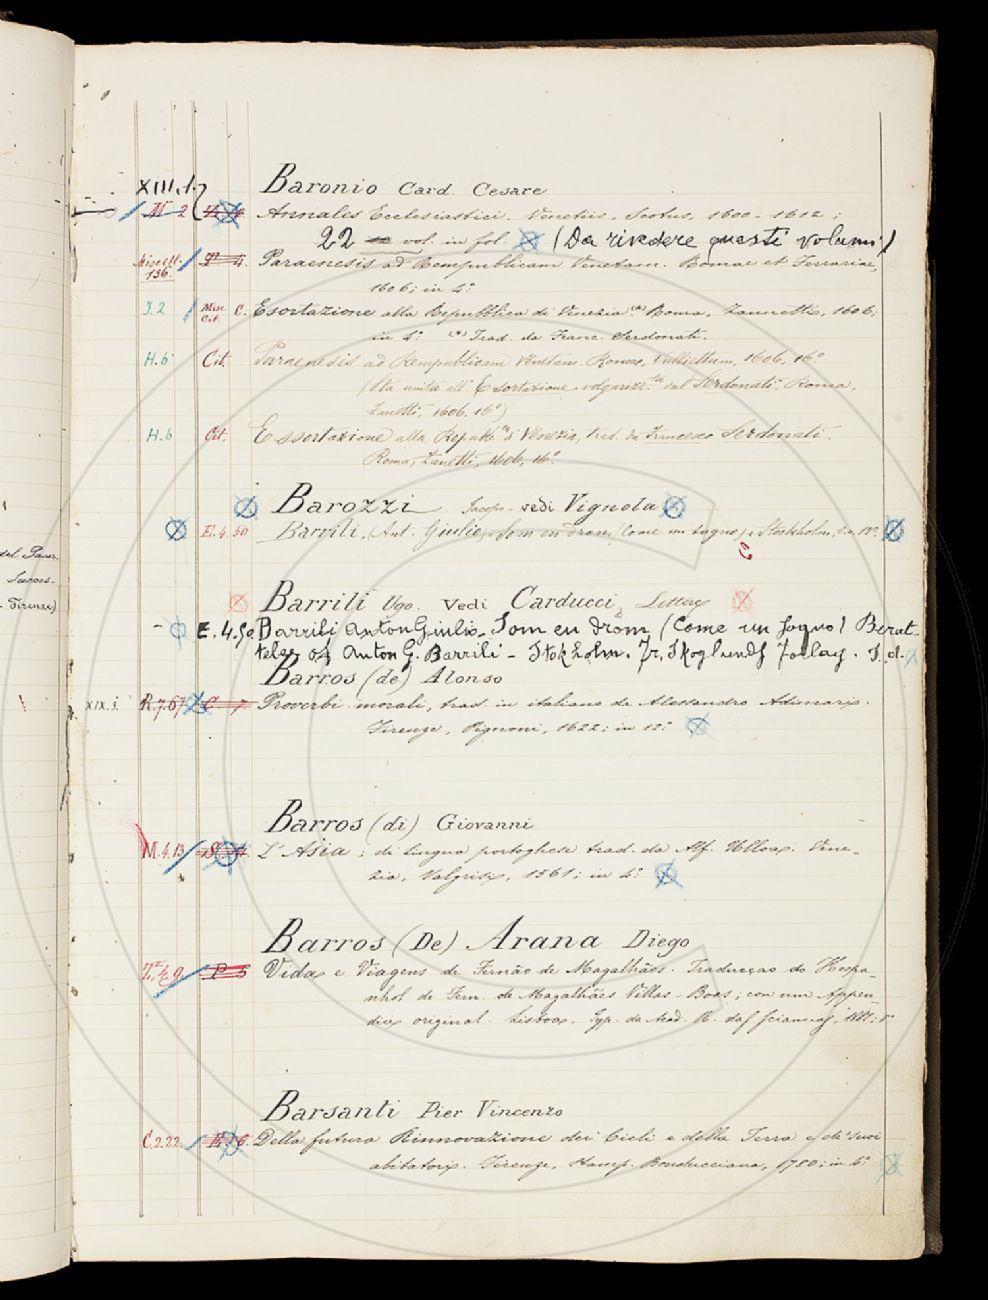 XIII. 1. Baronio Card Cesare
N 2 Annales Ecclesiastici. Venetiis, Scotus, 1600-1612;
22 vol. in fol. (Da rivedere questi volumi)
Miscell. 136. Paraenesis ad Rempublicam Venetam. Romae et Ferrariae,
1606; in 4.º
I. 2 Misc. Cit. C. Esortazione alla Repubblica di Venezia (*) Roma, Zannetti, 1606;
in 4.º (*) Trad. da Franc. Serdonati.
H. 6 Cit. Paraenesis ad Rempublicam Venetam. Romae, 1606, 16º
(Sta unita all' Esortazione, volgarizz.ta dal Serdonati. Roma,
Zanetti, 1606, 16º)
H. 6 Cit. Essortazione alla Repubb.ca di Venezia, trad. da Francesco Serdonati.
Roma, Zanetti, 1606, 16º.
Barozzi Jacopo vedi Vignola
E. 4. 50 Barrili, (Ant. Giulio) Som en dröm, (Come un sogno), Stockholm, s.a. 12º.
C
Barrili Ugo. Vedi Carducci, Lettere
E. 4. 50 Barrili Anton Giulio. Som en dröm (Come un sogno) Berät-
telse af Anton G. Barrili - Stokholm. Skoglunds Forlag. S. d.
Barros (de) Alonso
XIX. R. 7. 67 C 7 Proverbi morali, trad. in italiano da Alessandro Adimari.
Firenze, Pignoni, 1622; in 12.º
Barros (di) Giovanni
M. 4. 13 L'Asia; di lingua portoghese trad. da Alf. Ulloa. Vene-
zia, Valgrisi, 1561; in 4.º
Barros (De) Arana Diego
P. 5 Vida e Viagens de Fernão de Magalhães. Traducção do Hespa-
nhol de Fern. de Magalhães Villas-Boas; con um Appen-
dice original. Lisboa, Typ. da Acad. R. das Sciencias,
Barsanti Pier Vincenzo
C. 2. 22. Della futura Rinnovazione dei Cieli e della Terra e de' suoi
abitatori. Firenze, Stamp. Bonducciana, 1780; in 4.º
del
Firenze)